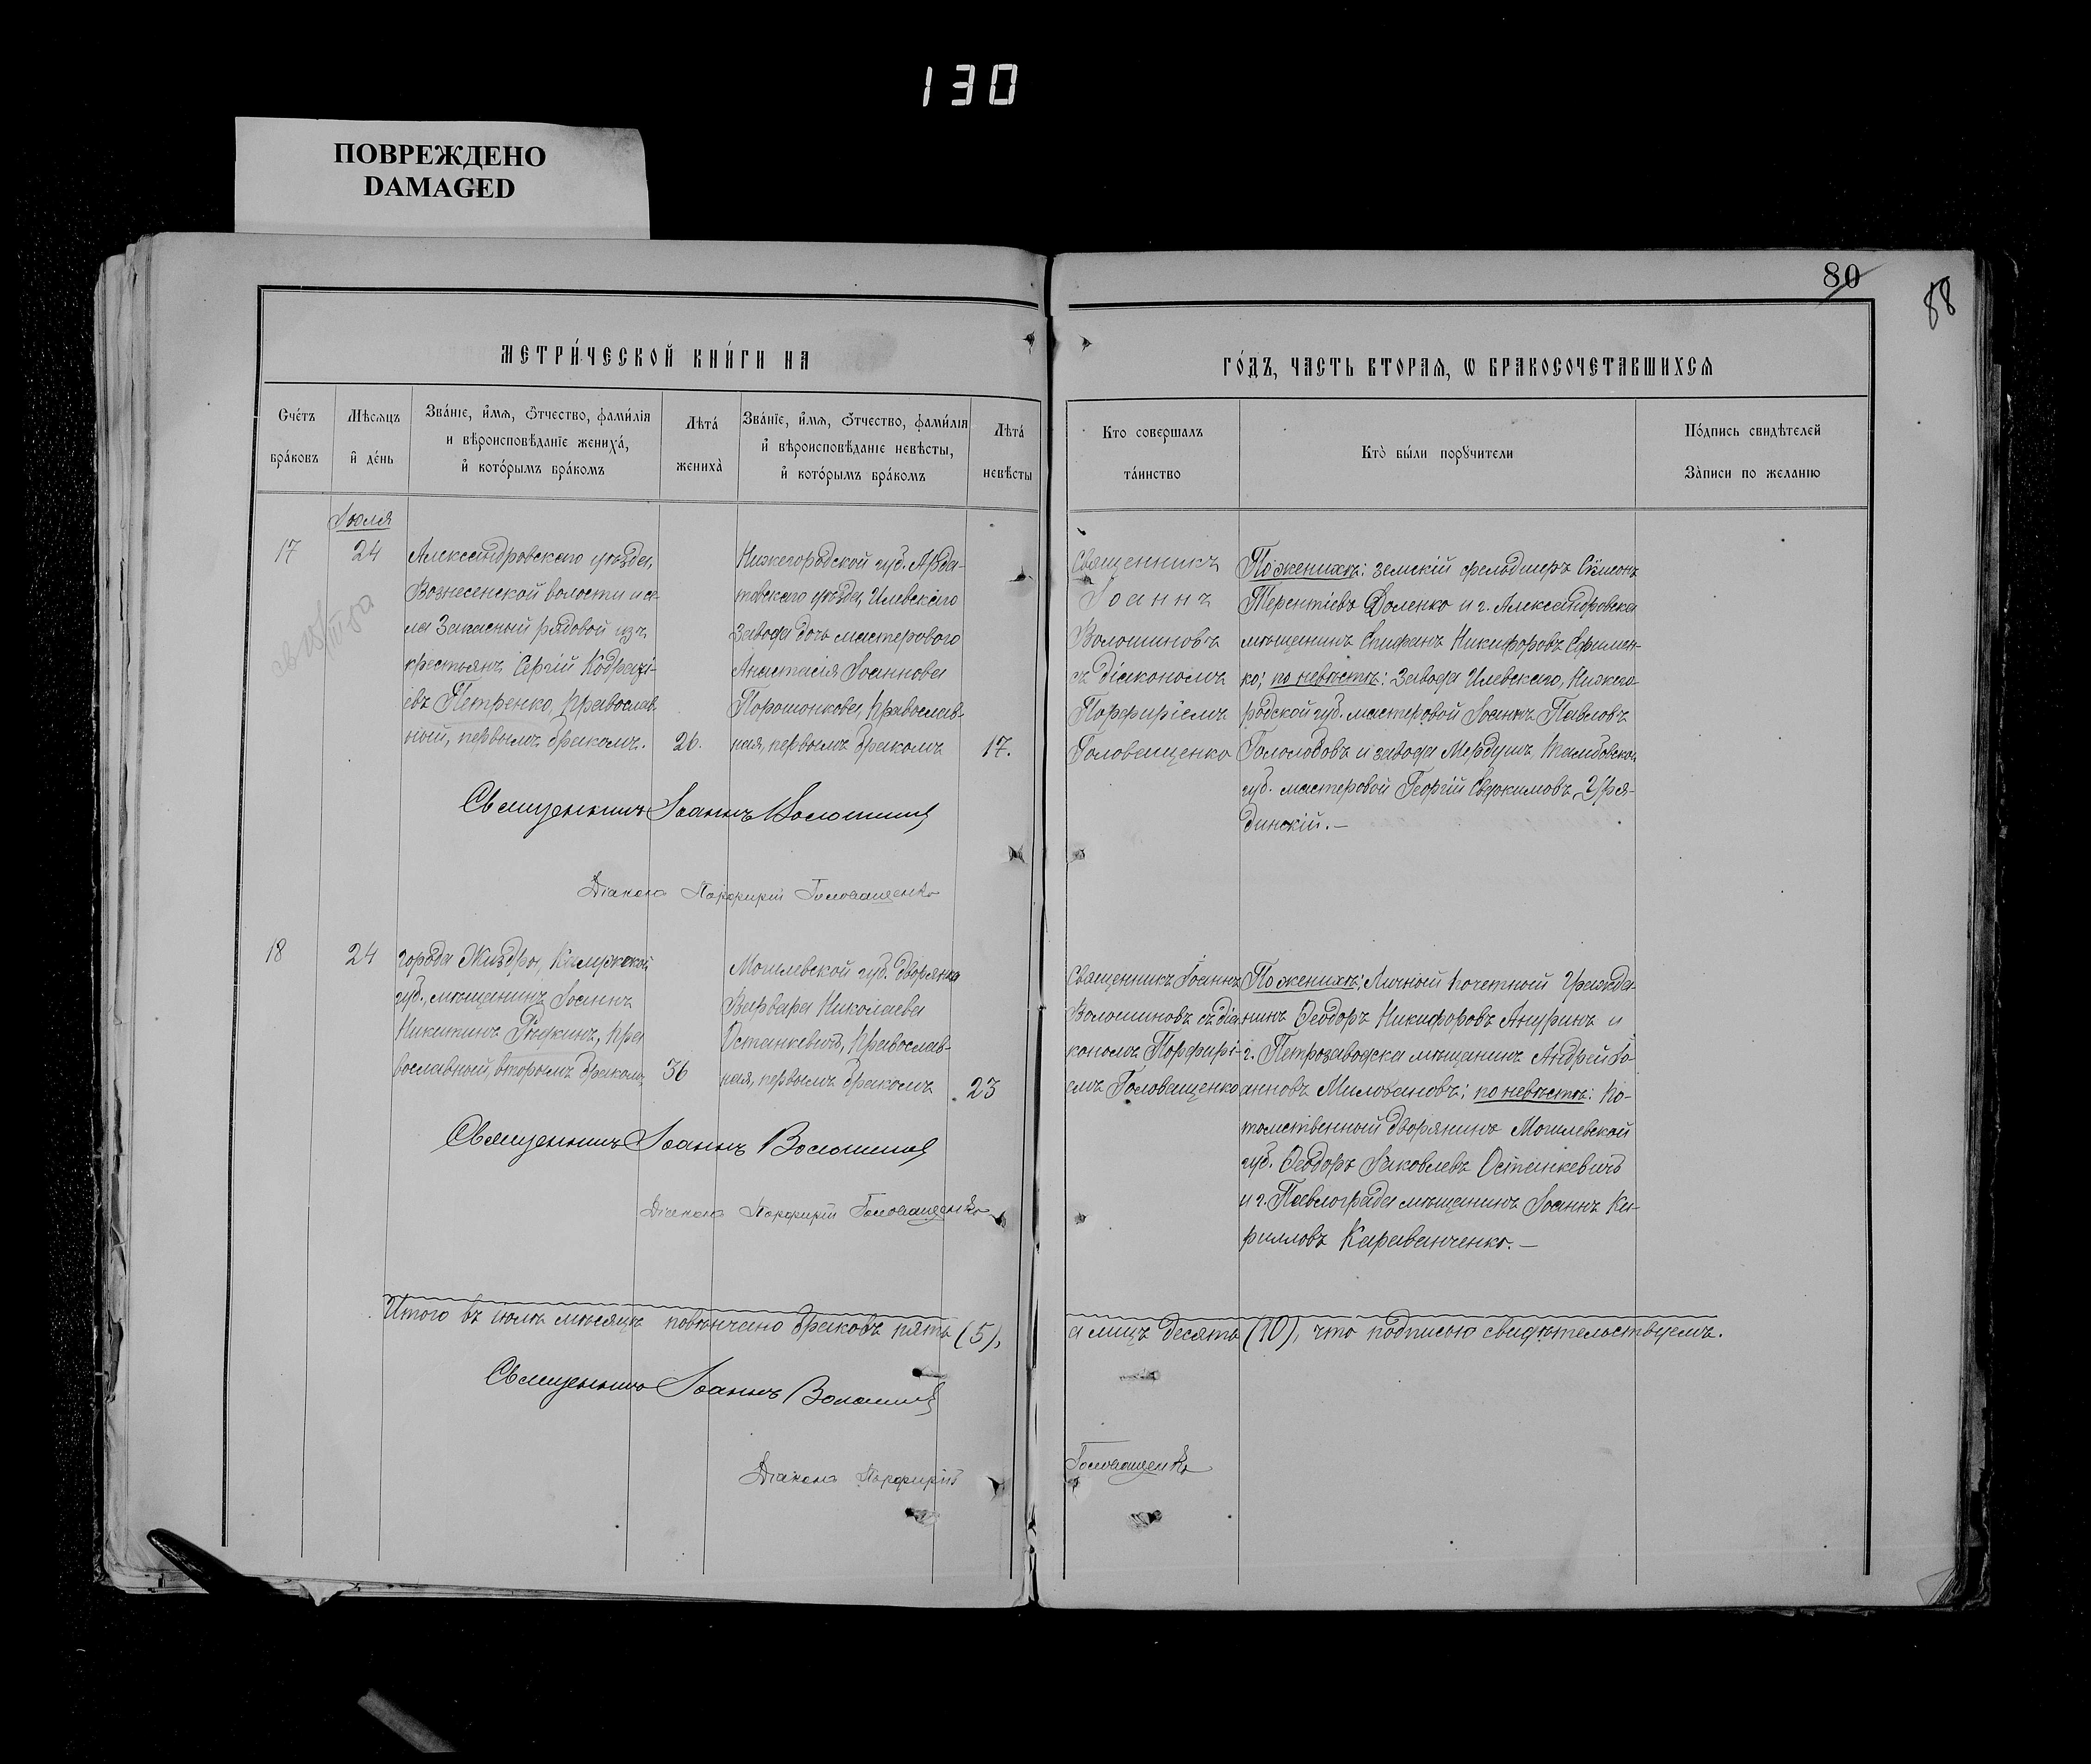 130
ПОВРЕЖДЕНО
DAMAGED
80
88
МЕТРИ́ЧЕСКОЙ КНИ́ГИ НА
ГО́ДЪ, ЧАСТЬ ВТОРАѦ, Ѡ БРАКОСОЧЕТАВШИХСѦ
Счéтъ
брáковъ
Мѣсѧцъ
и҆ дéнь
Звáнїе, и҆́мѧ, ѻ҆́тчество, фами́лїѧ
и вѣроисповѣ́данїе женихá,
и҆ котóрымъ брáкомъ
Лѣтá
женихà
Звáнїе, и҆́мѧ, ѻ҆́тчество, фами́лїѧ
и҆ вѣроисповѣ́данїе невѣ́сты,
и҆ котóрымъ брáкомъ
Лѣтá
невѣ́сты
Кто совершáлъ
тáинство
Ктò бы́ли порꙋчи́тели
Пóдпись свидѣ́телей
Зáписи по желáнїю
Іюля
17
24
Александровскаго уѣзда,
Вознесенской волости и се-
ла Запасный рядовой изъ
крестьянъ Сергій Кодраті-
евъ Петренко, православ
ный, первымъ бракомъ.
26.
Нижегородской губ. Арда-
товскаго уѣзда, Илевскаго
завода дочь мастерового
Анастасія Іоаннова
Порошонкова, православ-
ная, первымъ бракомъ
17.
Священникъ
Іоаннъ
Волошиновъ
съ діакономъ
Порфиріемъ
Головащенко
По женихѣ: земскій фельдшеръ Сѵмеонъ
Терентіевъ Доленко и г. Александровска
мѣщанинъ Епифанъ Никифоровъ Ефимен-
ко; по невѣстѣ: завода Илевскаго, Нижего-
родской губ. мастеровой Іоаннъ Павловъ
Гололобовъ и завода Мердушъ, Тамбовской
губ. мастеровой Георгій Евдокимовъ
динскій.—
Священникъ Іоаннъ Волошиновъ
Діаконъ Порфирій Головащенко
18
24
города Жиздры, Калужской
губ., мѣщанинъ Іоаннъ
Никитинъ пра
вославный, вторымъ бракомъ,
36
Могилевской губ. дворянка
Варвара Николаева
Останкевичъ, православ-
ная, первымъ бракомъ
23
Священникъ Іоаннъ
Волошиновъ съ діа
кономъ Порфирі-
емъ Головащенко
По женихѣ: Личный почетный гражда-
нинъ Ѳеодоръ Никифоровъ Ануринъ и
г. Петрозаводска мѣщанинъ Андрей Іо-
анновъ Миловановъ; по невѣстѣ: по-
томственный дворянинъ Могилевской
губ. Ѳеодоръ Іаковлевъ Останкевичъ
и г. Павлограда мѣщанинъ Іоаннъ Ки-
рилловъ Караванченко.—
Священникъ Іоаннъ Волошиновъ
Діаконъ Порфирій Головащенко
Итого въ іюлѣ мѣсяцѣ повѣнчано браковъ пять (5),
а лицъ десять (10), что подписью свидѣтельствуемъ.
Священникъ Іоаннъ Волошиновъ
Діаконъ Порфирій
Головащенко